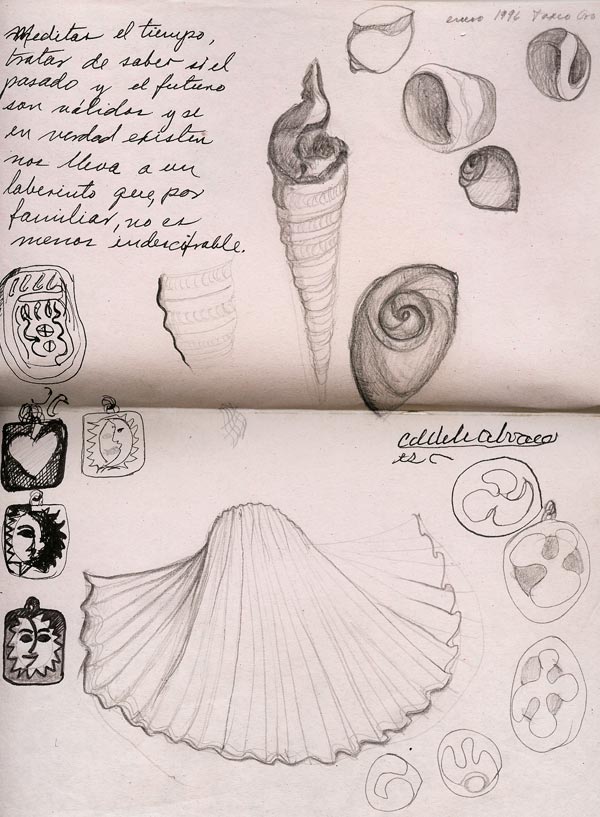 Meditar el tiempo,
tratar de saber si el
pasado y el futuro
son válidos y se
en verdad existen
nos lleva a un
laberinto que, por
familiar, no es
menos indescifrable.
enero 1996